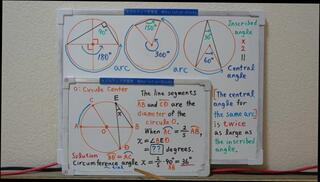 90°
180°
arc
150°
300°
30°
60°
arc
Inscribed
angle
x
2
=
Central
angle
O: Circle Center
C
E
x
A
O
B
D
The line segments
AB and CD are the
diameter of the
circle O.
When AC = 2/5 AB,
x = ∠AED
= [??] degrees.
Solution
circumference angle
x = 2/5 · 90° = 36°
The central
angle for
the same arc
is twice
as large as
the inscribed
angle.